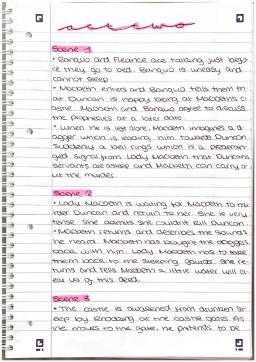 act two
Scene 1
• Banquo and Fleance are talking just befo
re they go to bed. Banquo is uneasy and
cannot sleep
• Macbeth enters and Banquo tells them th
at Duncan is happy being at Macbeth's c
astle. Macbeth and Banquo agree to discuss
the prophecies at a later date.
• When he is left alone, Macbeth imagines a d
agger which is leading him towards Duncan.
Suddenly a bell rings which is a prearran
ged signal from Lady Macbeth that Duncan's
servants are asleep and Macbeth can carry o
ut the murder.
Scene 2
• Lady Macbeth is waiting for Macbeth to mu
rder Duncan and return to her. She is very
tense. She admits she couldn't kill Duncan.
• Macbeth returns and describes the sounds
he heard. Macbeth has brought the daggers
back with him. Lady Macbeth has to take
them back to the sleeping guards. She re
turns and tells Macbeth a little water will cl
ear us of this deed.
Scene 3
• The castle is awakened from drunken sl
eep by knocking at the castle gates. As
he moves to the gate, he pretends to be